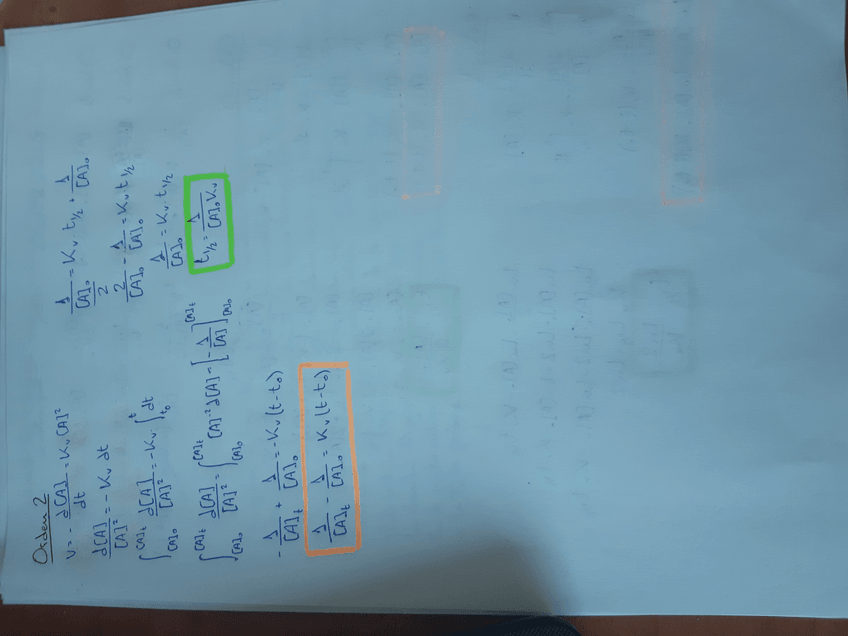 Orden 2
v = - d[A]/dt = Kv [A]²
d[A]/[A]² = - Kv dt
∫_[A]₀^[A]t d[A]/[A]² = - Kv ∫_t₀^t dt
∫_[A]₀^[A]t d[A]/[A]² = ∫_[A]₀^[A]t [A]⁻² d[A] = [- 1/[A]]_[A]₀^[A]t
- 1/[A]t + 1/[A]₀ = - Kv (t - t₀)
1/[A]t - 1/[A]₀ = Kv (t - t₀)
1/([A]₀/2) = Kv t1/2 + 1/[A]₀
2/[A]₀ - 1/[A]₀ = Kv t1/2
1/[A]₀ = Kv t1/2
t1/2 = 1/([A]₀ Kv)